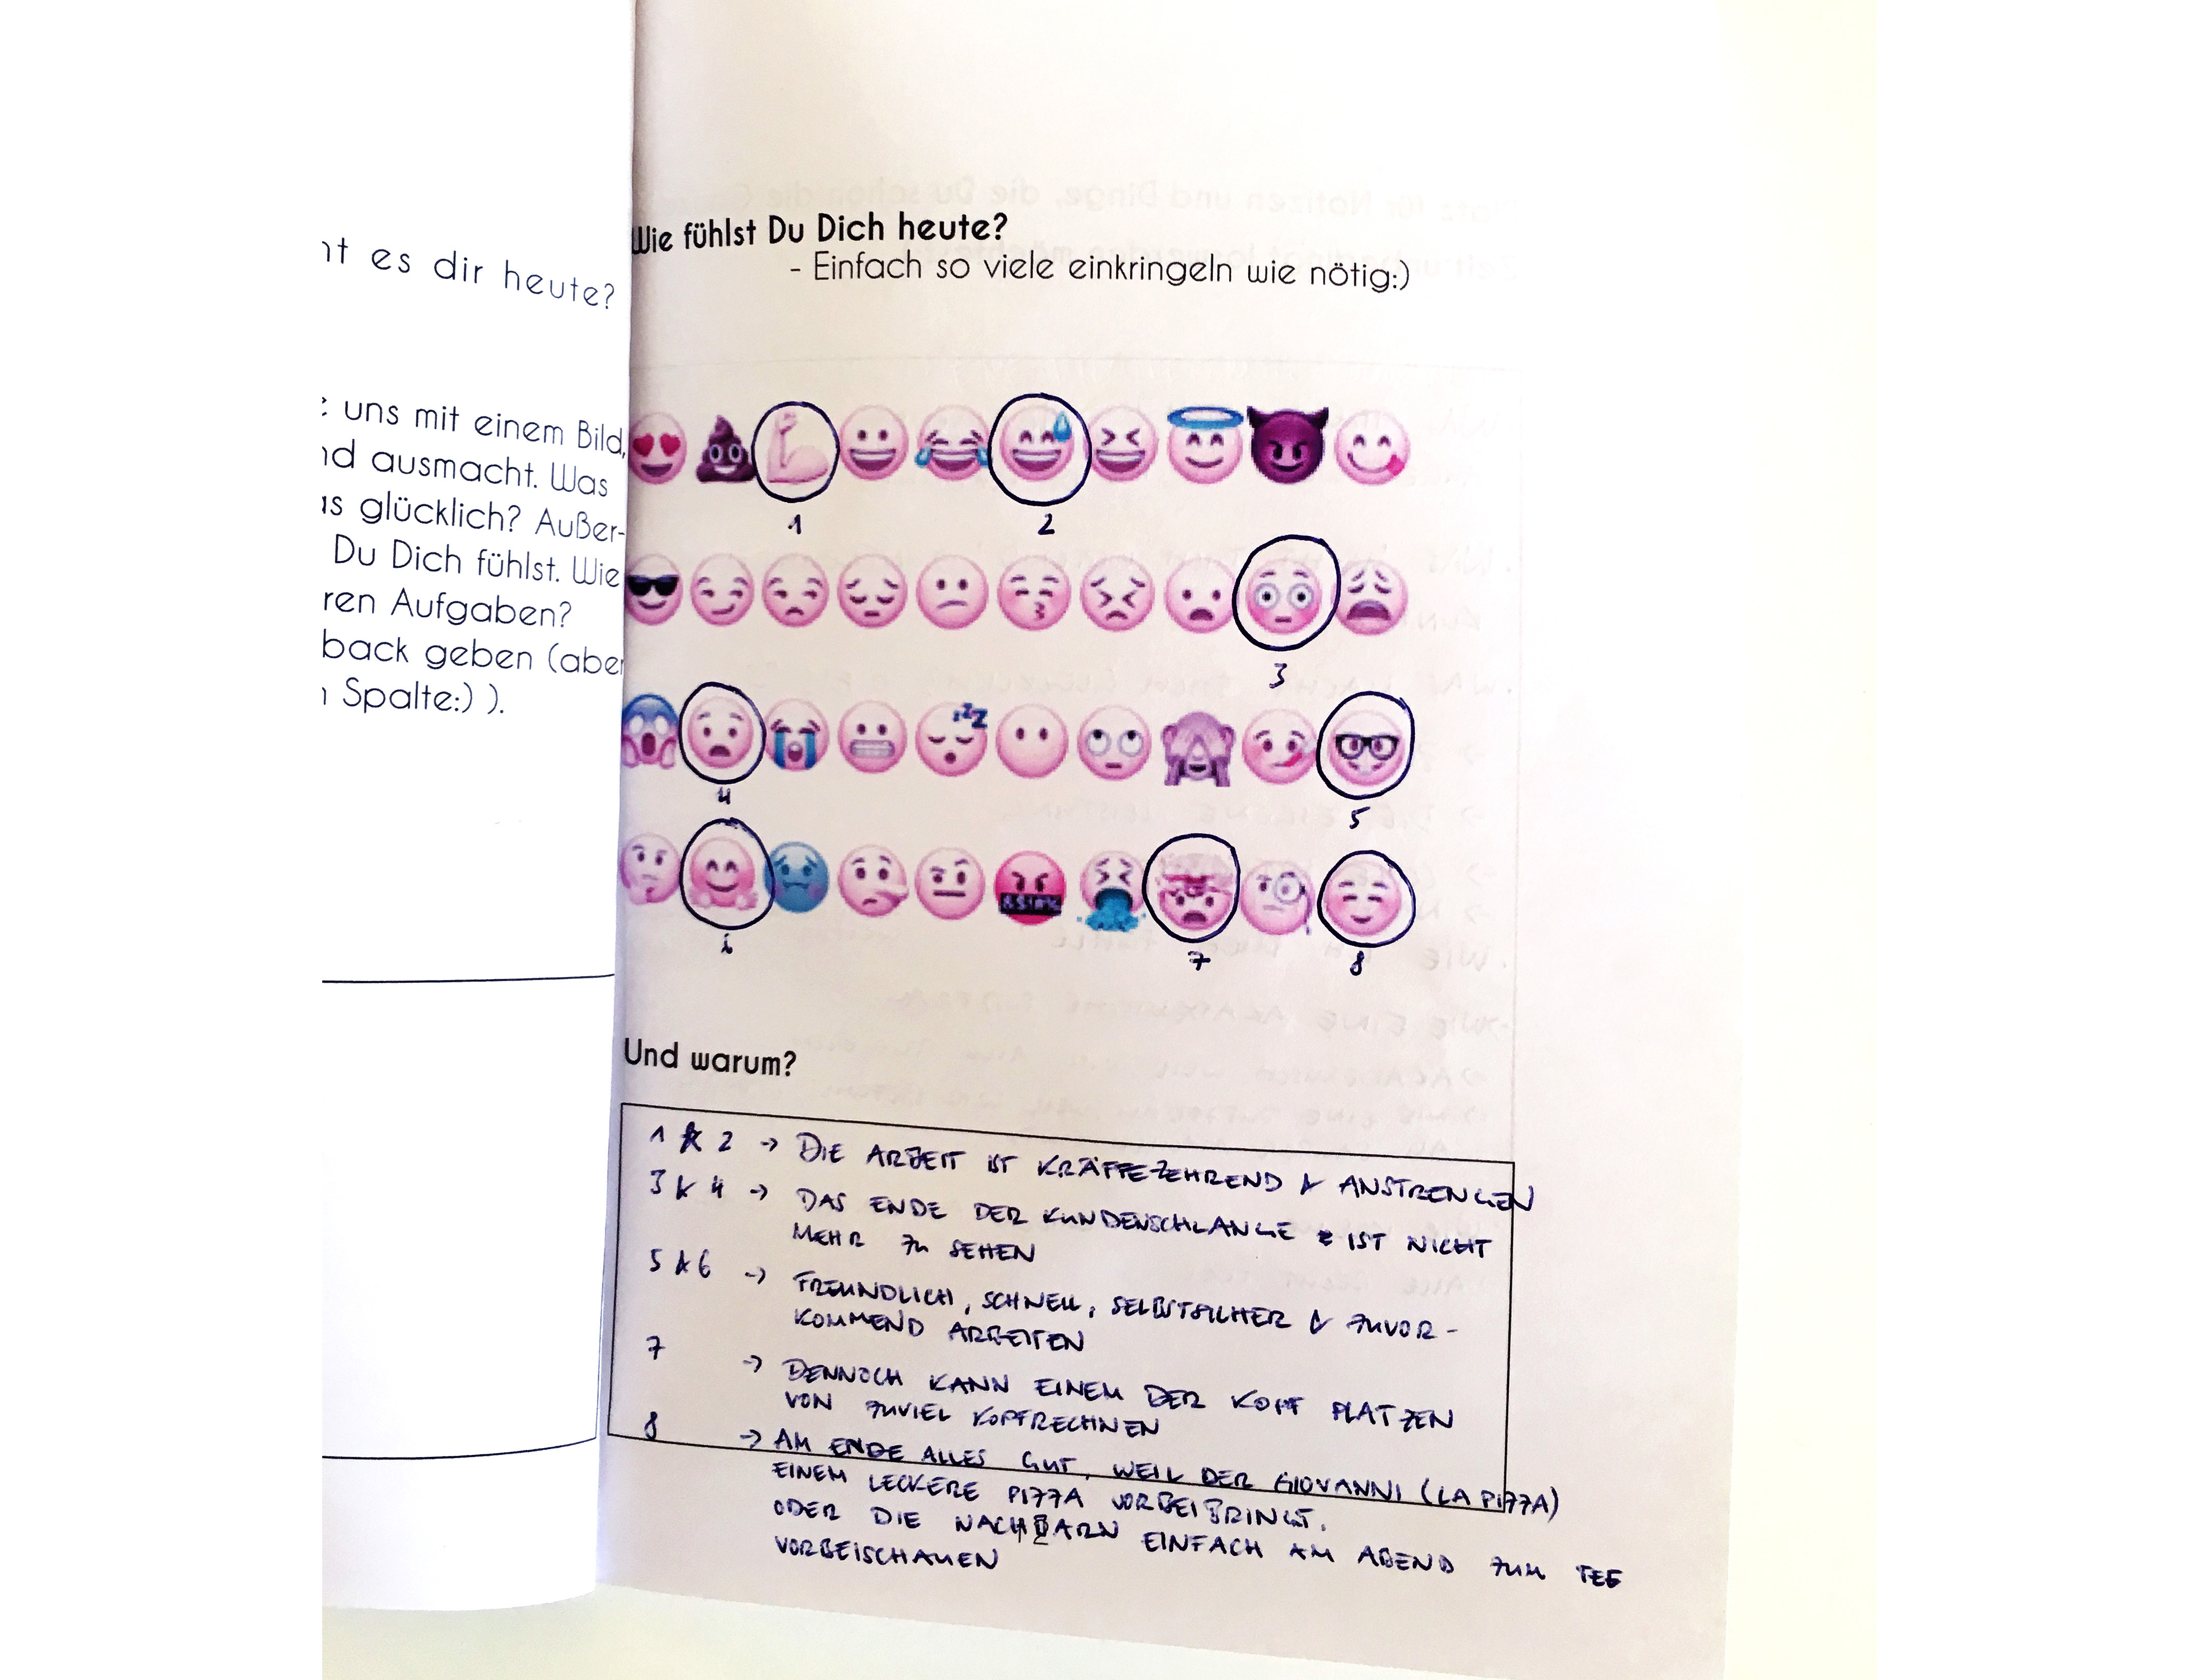 nt es dir heute?
uns mit einem Bild,
nd ausmacht. Was
as glücklich? Außer-
Du Dich fühlst. Wie
ren Aufgaben?
back geben (aber
n Spalte:) ).
Wie fühlst Du Dich heute?
- Einfach so viele einkringeln wie nötig:)
1 2
3
zzZ
4 5
6 7 8
Und warum?
1 & 2 → DIE ARBEIT IST KRÄFTEZEHREND & ANSTRENGEN
3 & 4 → DAS ENDE DER KUNDENSCHLANGE IST NICHT
MEHR ZU SEHEN
5 & 6 → FREUNDLICH, SCHNELL, SELBSTSICHER & ZUVOR-
KOMMEND ARBEITEN
7 → DENNOCH KANN EINEM DER KOPF PLATZEN
VON ZUVIEL KOPFRECHNEN
8 → AM ENDE ALLES GUT, WEIL DER GIOVANNI (LA PIZZA)
EINEM LECKERE PIZZA VORBEIBRINGT.
ODER DIE NACHBARN EINFACH AM ABEND ZUM TEE
VORBEISCHAUEN